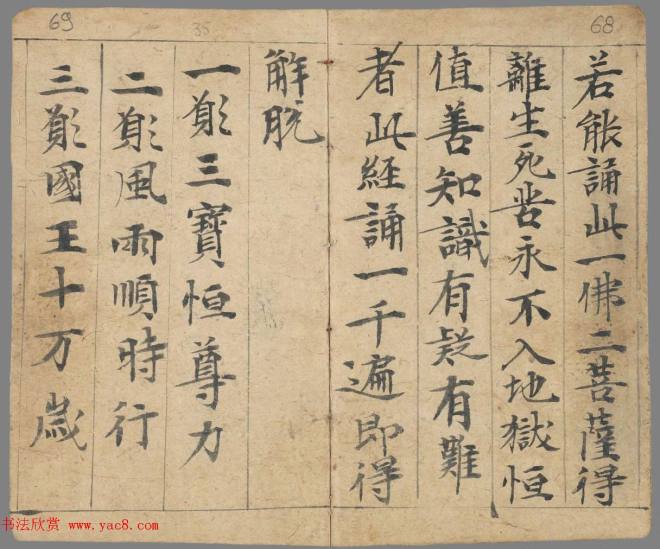 68
若能誦此一佛二菩薩得
離生死苦永不入地獄恒
值善知識有疑有難
者此経誦一千遍即得
解脱
35
69
一願三寶恒尊力
二願風雨順時行
三願國王十万歲
书法欣赏 www.yac8.com